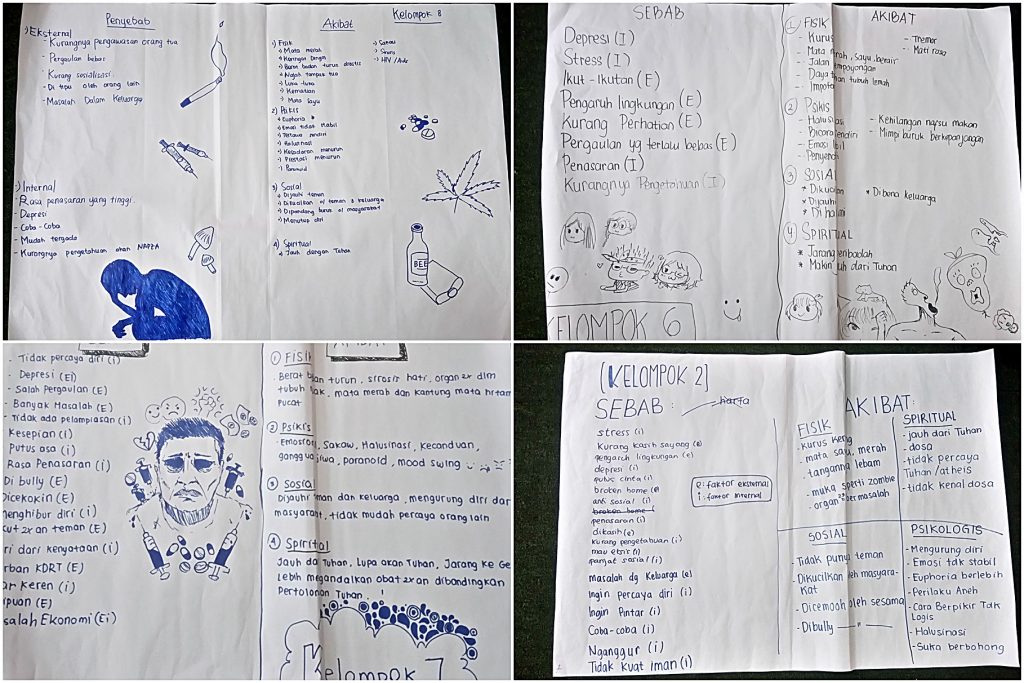 Penyebab
Eksternal
- Kurangnya pengawasan orang tua
- Pergaulan bebas
- Kurang sosialisasi
- Di tipu oleh orang lain
- Masalah Dalam Keluarga
Internal
- Rasa penasaran yang tinggi.
- Depresi
- Coba-Coba
- Mudah tergoda
- Kurangnya pengetahuan akan NAPZA
Akibat
Kelompok 8
1) Fisik
Mata merah
Keringat Dingin
Berat badan turun drastis
Ngilu-ngilu
Kematian
Mata Sayu
- Sakau
- Sirosis
- HIV / Aids
2) Psikis
Euphoria
Emosi tidak stabil
Tertawa sendiri
Halusinasi
Kesadaran menurun
Prestasi menurun
Paranoid
3) Sosial
Dijauhi teman
Dikucilkan o/ teman & keluarga
Dipandang buruk o/ masyarakat
Menutup diri
4) Spiritual
Jauh dengan Tuhan
BEE
SEBAB
Depresi (I)
Stress (I)
Ikut-Ikutan (E)
Pengaruh lingkungan (E)
Kurang Perhatian (E)
Pergaulan yg terlalu bebas (E)
Penasaran (I)
Kurangnya Pengetahuan (I)
KELOMPOK 6
AKIBAT
1 FISIK
- Kurus
- Mata merah, sayu, berair
- Jalan
- Daya tahan tubuh lemah
- Impoten
- Tremor
- Mati rasa
2 Psikis
- Halusinasi
- Bicara sendiri
- Emosi
- Kehilangan napsu makan
- Mimpi buruk berkepanjangan
3 SOSIAL
* Dikucilkan
* Dijauhi
* Di hakimi
* Dibenci keluarga
4 SPIRITUAL
* Jarang beribadah
* Makin jauh dari Tuhan
- Tidak percaya diri (i)
- Depresi (Ei)
- Salah Pergaulan (E)
- Banyak Masalah (E)
- Tidak ada pelampiasan (i)
Kesepian (i)
Putus asa (i)
Rasa Penasaran (i)
Di bully (E)
Dicekokin (E)
menghibur diri (i)
kut 2xan teman (E)
ri dari kenyataan (i)
rban KDRT (E)
ar Keren (i)
ipuan (E)
salah Ekonomi (Ei)
AKIBAT
1 FISIK
Berat badan turun, sirosis hati, organ2x dlm
tubuh rusak, mata merah dan kantung mata hitam
pucat
2 Psikis
- Emosian, Sakaw, Halusinasi, Kecanduan,
gangguan jiwa, paranoid, mood swing
3 Sosial
Dijauhi teman dan keluarga, mengurung diri dari
masyarakat, tidak mudah percaya orang lain
4 Spiritual
Jauh dari Tuhan, Lupa akan Tuhan, Jarang ke Ge
Lebih mengandalkan obat2xan dibandingkan
Pertolongan Tuhan!
Kelompok 7
[KELOMPOK 2]
SEBAB:
harta
stress (i)
kurang kasih sayang (e)
pengaruh lingkungan (e)
depresi (i)
putus cinta (i)
broken home (e)
anti sosial (i)
broken home (
penasaran (i)
dikasih (e)
kurang pengetahuan (i)
panjat sosial (i)
masalah dg Keluarga (e)
Ingin percaya diri (i)
Ingin Pintar (i)
Coba-coba (i)
Nganggur (i)
Tidak kuat iman (i)
e: faktor eksternal
i: faktor internal
AKIBAT:
FISIK
- kurus kering
- mata sayu, merah
- tangannya lebam
- muka sperti zombie
- organ2x bermasalah
SPIRITUAL
- jauh dari Tuhan
- dosa
- tidak percaya
Tuhan/atheis
- tidak kenal dosa
SOSIAL
- Tidak punya teman
- Dikucilkan oleh masyara-
kat
- Dicemooh oleh sesama
- Dibully —"—
PSIKOLOGIS
- Mengurung diri
- Emosi tdk stabil
- Euphoria berlebih
- Perilaku Aneh
- Cara Berpikir Tdk
Logis
- Halusinasi
- Suka berbohong